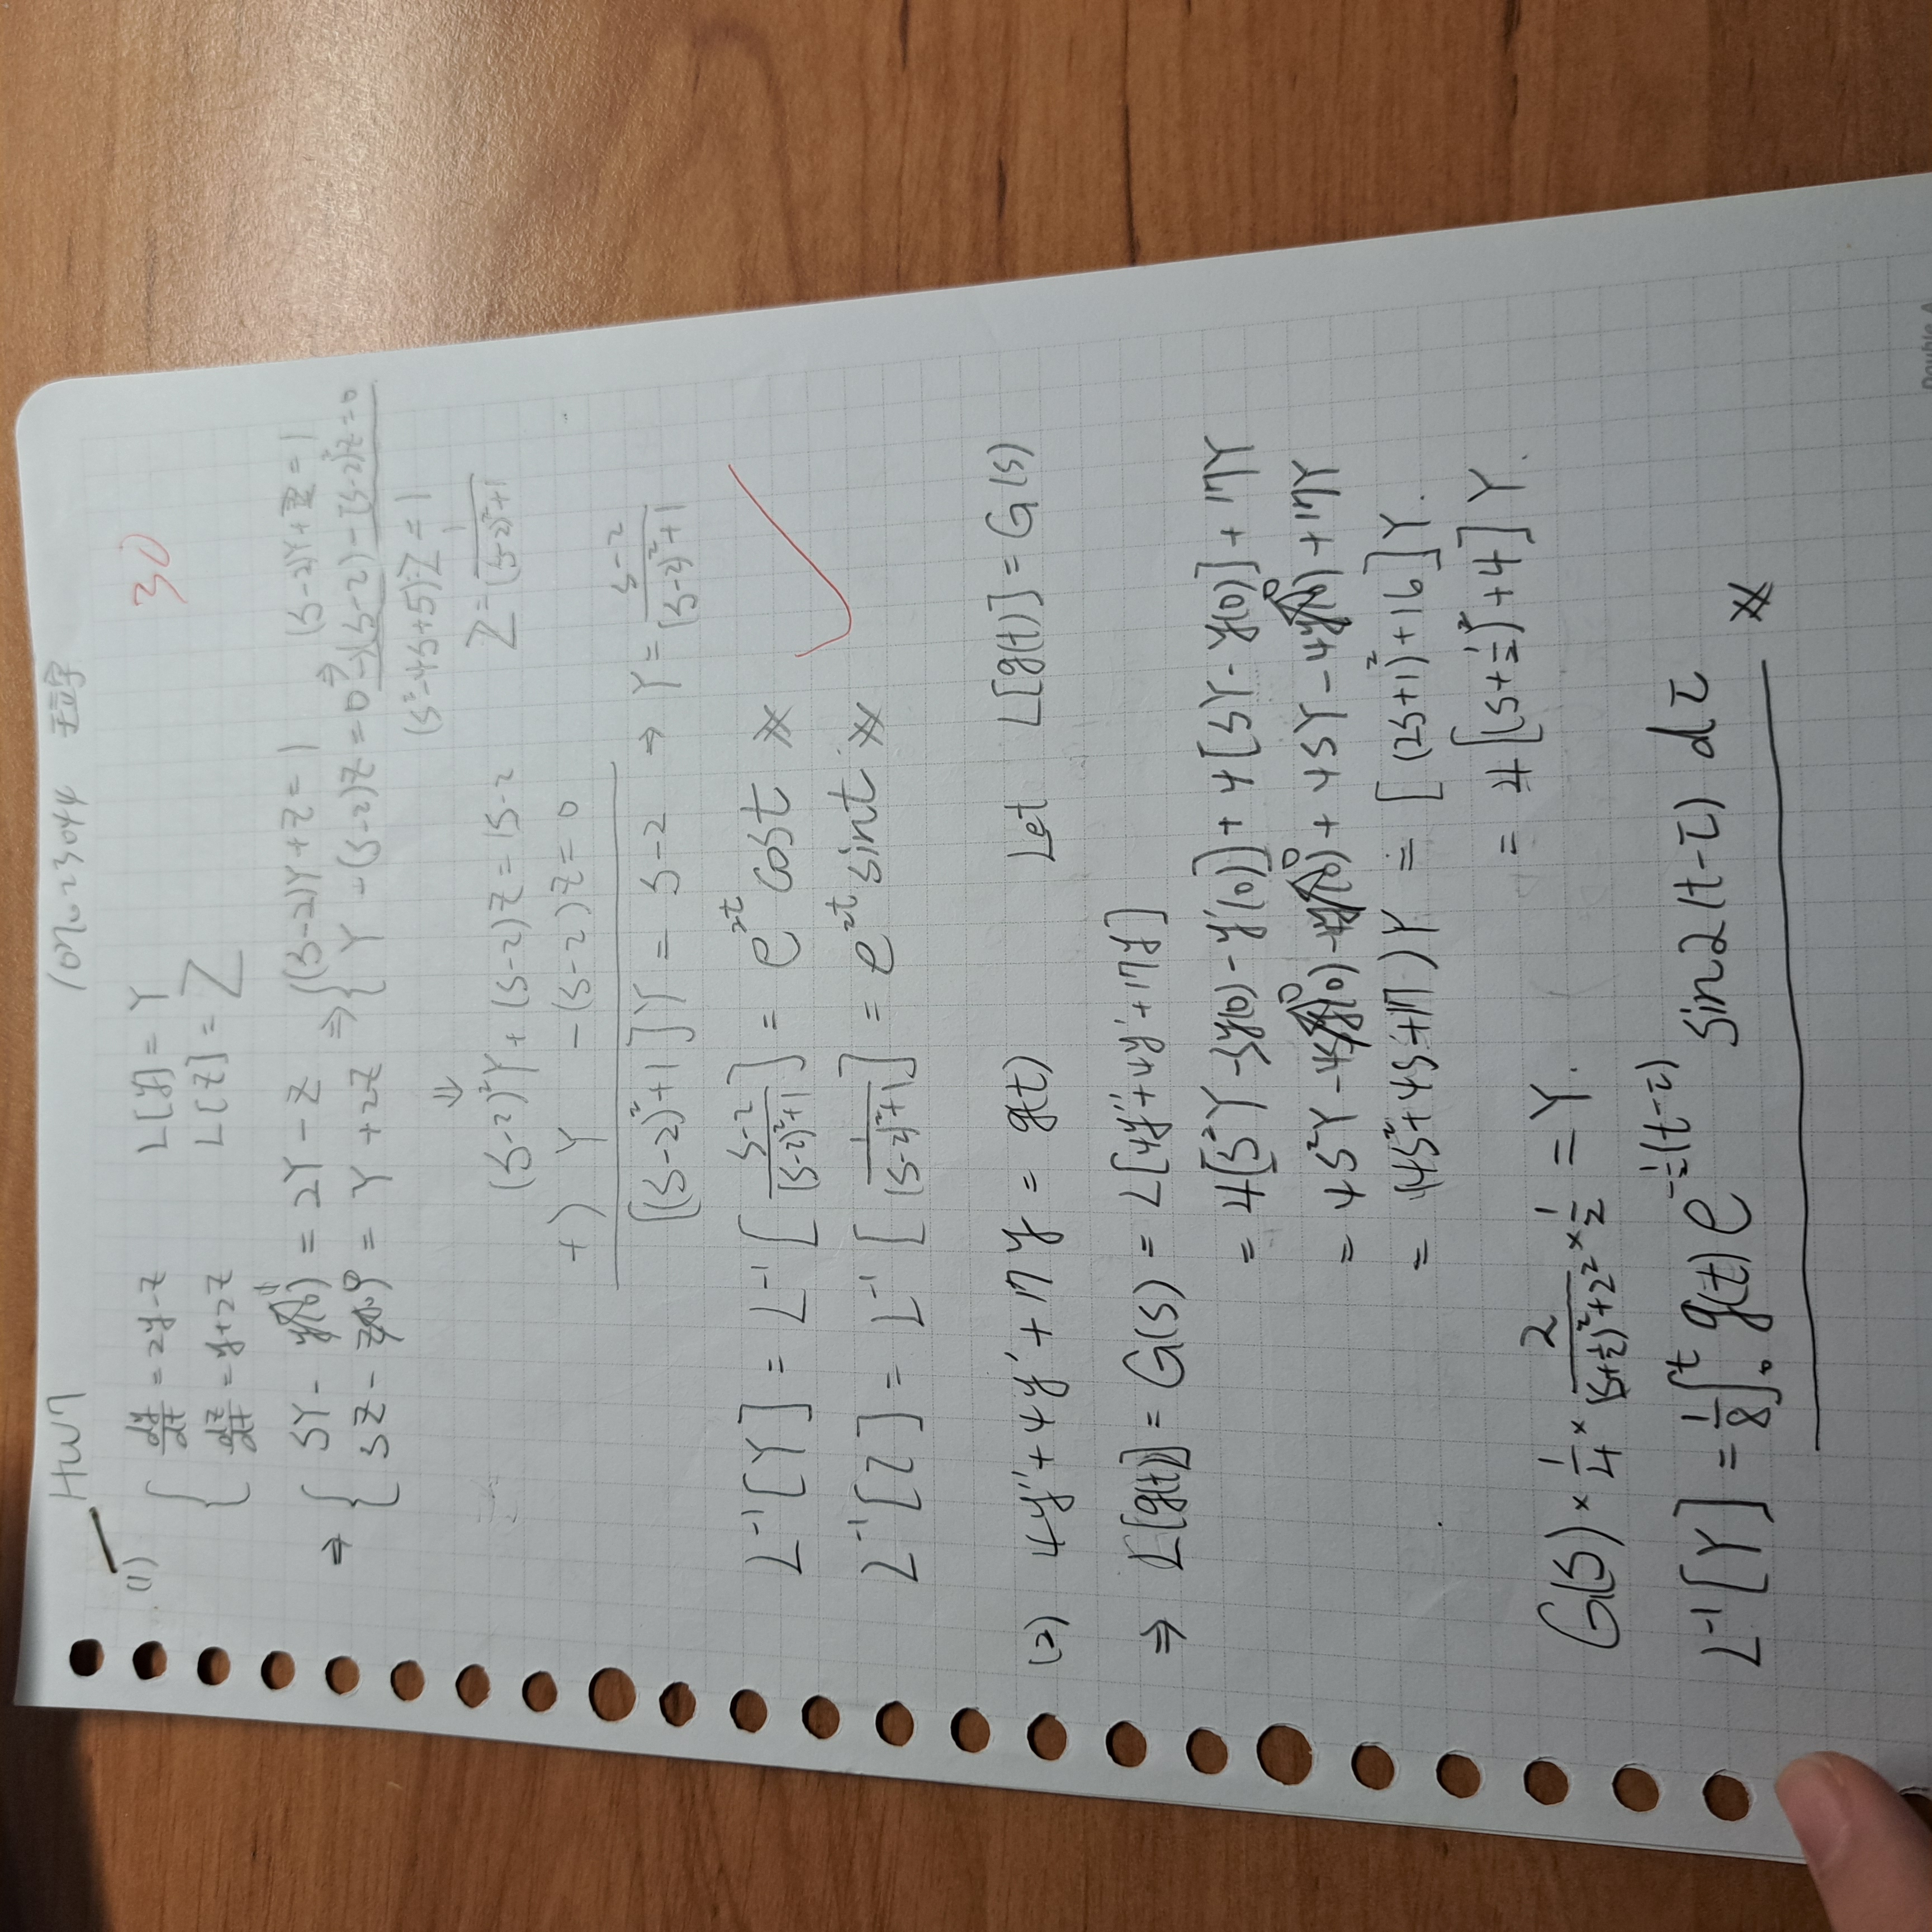 HW7 107023044
30
(1) { dy/dt = 2y-z L[y] = Y
dz/dt = y+2z L[z] = Z
⇒ { sY - y(0) 1 = 2Y - Z ⇒ { (s-2)Y + Z = 1 ⇒ (s-2)Y + Z = 1
sZ - z(0) 0 = Y + 2Z Y - (s-2)Z = 0 -)(s-2) - (s-2)²Z = 0
(s²-4s+5)Z = 1
⇓
(s-2)²Y + (s-2)Z = 1s-2 Z = 1/((s-2)²+1)
+) Y - (s-2)Z = 0
[(s-2)²+1]Y = s-2 ⇒ Y = (s-2)/((s-2)²+1)
L⁻¹[Y] = L⁻¹[(s-2)/((s-2)²+1)] = e^{2t} cost
L⁻¹[Z] = L⁻¹[1/((s-2)²+1)] = e^{2t} sint
(2) 4y''+4y'+17y = g(t) Let L[g(t)] = G(s)
⇒ L[g(t)] = G(s) = L[4y''+4y'+17y]
= 4[s²Y - sy(0) - y'(0)] + 4[sY - y(0)] + 17Y
= 4s²Y - 4sy(0) 0 - 4y'(0) 0 + 4sY - 4y(0) 0 + 17Y
= (4s²+4s+17)Y = [(2s+1)²+16]Y.
= 4[(s+1/2)²+4]Y.
G(s) × 1/4 × 2/((s+1/2)²+2²) × 1/2 = Y.
L⁻¹[Y] = 1/8 ∫₀ᵗ g(t) e^{-1/2(t-τ)} sin2(t-τ) dτ
Double A